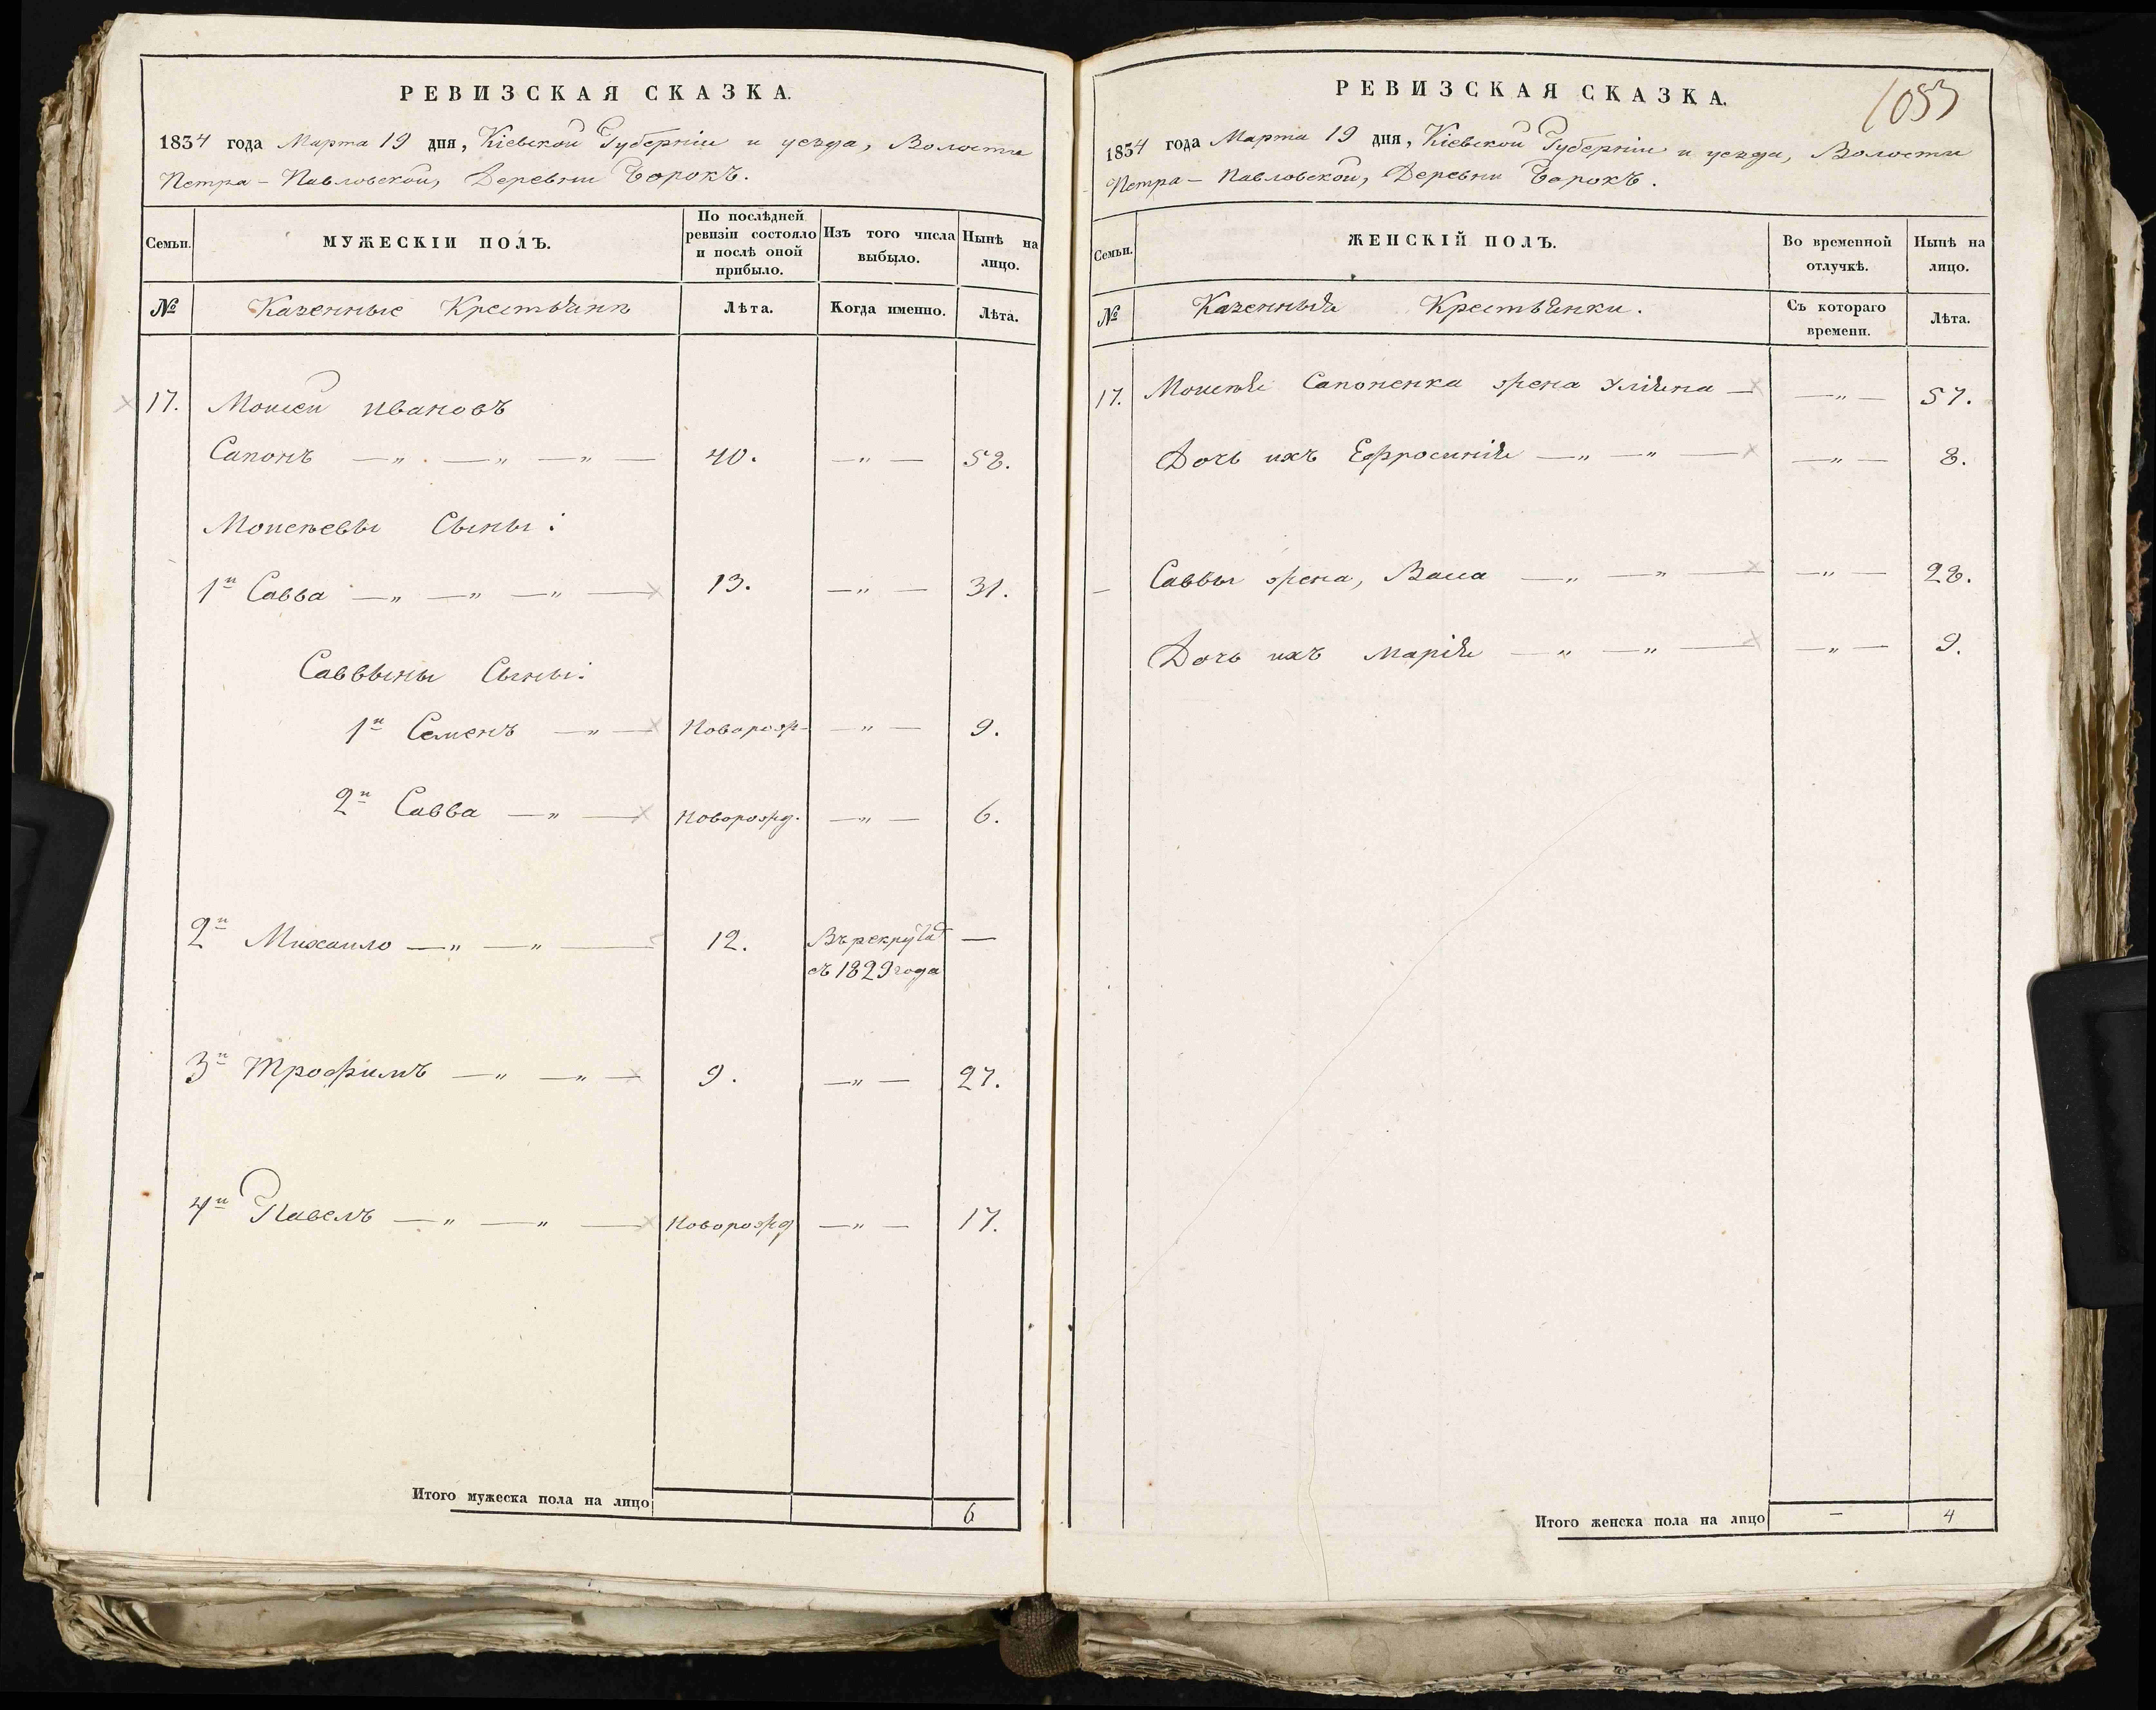 РЕВИЗСКАЯ СКАЗКА.
1834 года Марта 19 дня, Кіевской Губерніи и уезда, Волости
Петра-Павловской, Деревни Борокъ.
Семьи.
МУЖЕСКІЙ ПОЛЪ.
По послѣдней ревизіи состояло и послѣ оной прибыло.
Изъ того числа выбыло.
Нынѣ на лицо.
№ Казенные Крестьяне Лѣта. Когда именно. Лѣта.
17. Моисей Ивановъ
Сапонъ — „ — „ — „ — 40. — „ — 58.
Моисеевы Сыны:
1й Савва — „ — „ — „ — 13. — „ — 31.
Саввыны Сыны:
1й Семенъ — „ — Новорож- — „ — 9.
2й Савва — „ — Новорожд. — „ — 6.
2й Михаило — „ — „ — 12. Въ рекрут —
съ 1829 года
3й Трофимъ — „ — „ — 9. — „ — 27.
4й Павелъ — „ — „ — Новорожд — „ — 17.
Итого мужеска пола на лицо 6
1053
РЕВИЗСКАЯ СКАЗКА.
1834 года Марта 19 дня, Кіевской Губерніи и уезда, Волости
Петра-Павловской, Деревни Борокъ.
Семьи.
ЖЕНСКІЙ ПОЛЪ.
Во временной отлучкѣ.
Нынѣ на лицо.
№ Казенныя Крестьянки. Съ котораго времени. Лѣта.
17. Моисея Сапоненка жена Улияна — — „ — 57.
Дочь ихъ Ефросинія — „ — „ — — „ — 8.
Саввы жена, Васса — „ — „ — — „ — 28.
Дочь ихъ Марія — „ — „ — — „ — 9.
Итого женска пола на лицо — 4